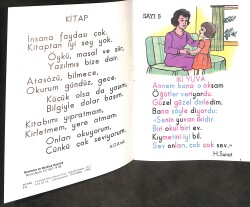 KİTAP
İnsana faydası çok,
Kitaptan iyi şey yok.
Öykü, masal ve şiir,
Yazılmış bize dair.
Atasözü, bilmece,
Okurum gündüz, gece.
Küçük olsa da yaşım,
Bilgiyle dolar başım.
Kitabımı yıpratmam,
Kirletmem, yere atmam.
Onlar okuyorum,
Çünkü çok seviyorum.
SAYI 5
İKİ YUVA
Annem bana o akşam
Öğütler veriyordu.
Güzel güzel dinledim.
Bana şöyle diyordu:
-Senin yuvan ikidir.
Biri okul biri ev.
Kıymetini iyi bil.
Sev onları, çok çok sev.-